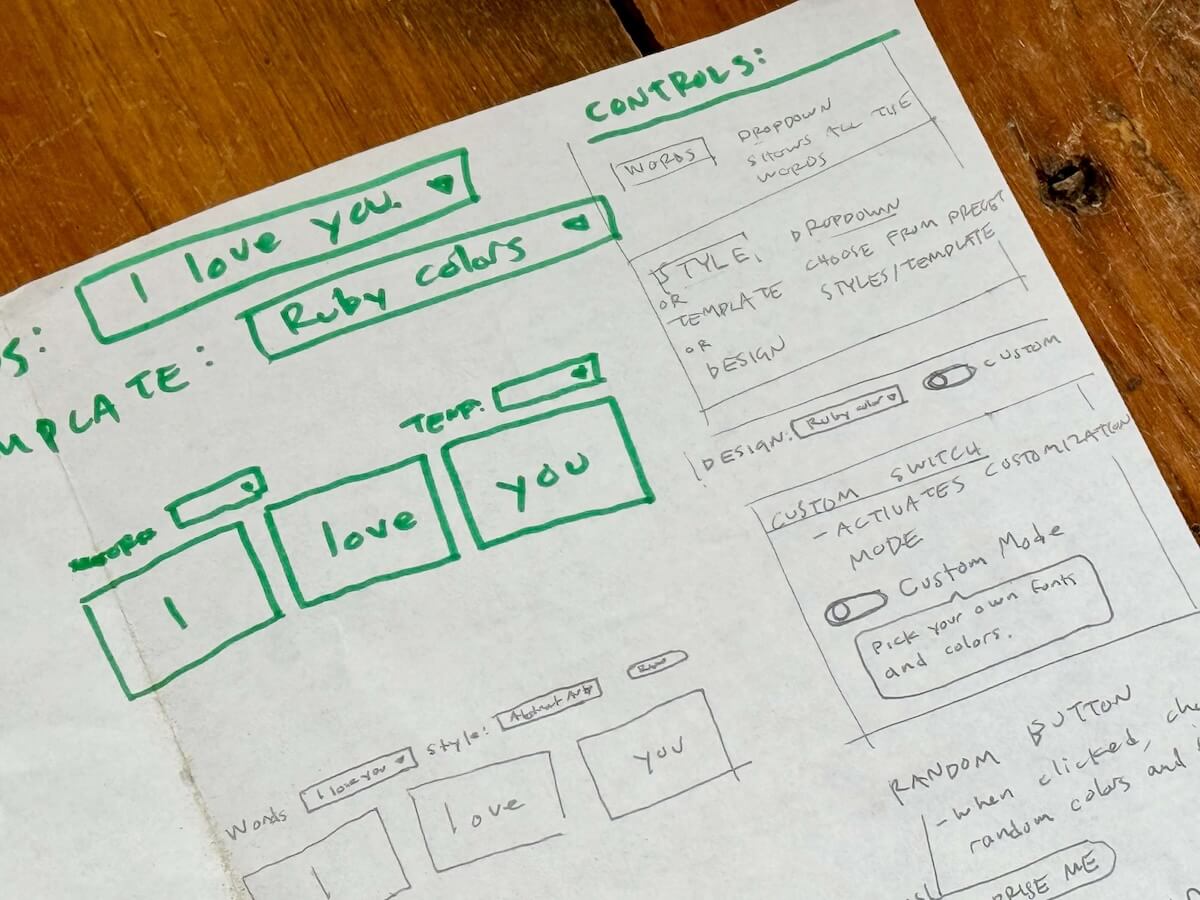 I love you.
S:
Ruby colors
MPLATE:
TEMP.
I
love
you
Words
I love you
Style:
Abstract Art
I
love
you
CONTROLS:
WORDS
DROPDOWN
SHOWS ALL THE
WORDS
STYLE,
OR
TEMPLATE
OR
DESIGN
DROPDOWN
CHOOSE FROM PRESET
STYLES/TEMPLATE
DESIGN: Ruby color
CUSTOM
CUSTOM SWITCH
- ACTIVATES CUSTOMIZATION
MODE
Custom Mode
Pick your own fonts
and colors.
RANDOM BUTTON
- when clicked,
random colors and
PRISE ME